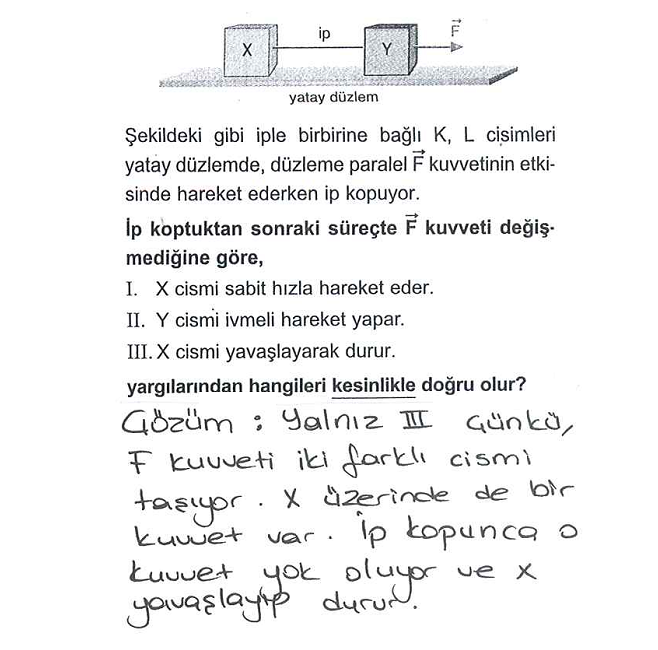 ip
F
X
Y
yatay düzlem
Şekildeki gibi iple birbirine bağlı K, L cisimleri
yatay düzlemde, düzleme paralel F kuvvetinin etki-
sinde hareket ederken ip kopuyor.
İp koptuktan sonraki süreçte F kuvveti değiş-
mediğine göre,
I. X cismi sabit hızla hareket eder.
II. Y cismi ivmeli hareket yapar.
III. X cismi yavaşlayarak durur.
yargılarından hangileri kesinlikle doğru olur?
Çözüm : Yalnız III Çünkü,
F kuvveti iki farklı cismi
taşıyor. X üzerinde de bir
kuvvet var. İp kopunca o
kuvvet yok oluyor ve X
yavaşlayıp durur.